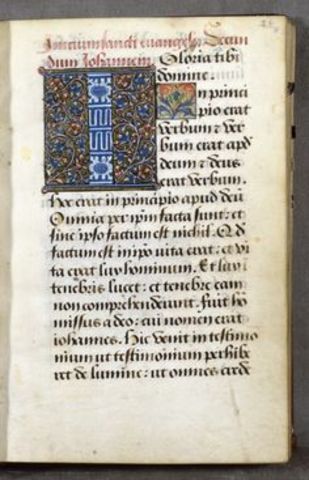 Inicium sancti euangelij Secun
dum Iohannem. Gloria tibi
domine.
In princi
pio erat
verbum et ver
bum erat apd
deum et deus
erat verbum.
hoc erat in principio apud deū
Omnia per ip̄m facta sunt: et
sine ipso factum est nichil. Qd̄
factum est in ip̄o vita erat: et vi
ta erat lux hominum. Et lux ī
tenebris lucet: et tenebre eam
non comprehenderunt. fuit ho
missus a deo: cui nomen erat
iohannes. Hic venit in testimo
nium ut testimonium perhibe
ret de lumine: ut omnes crede